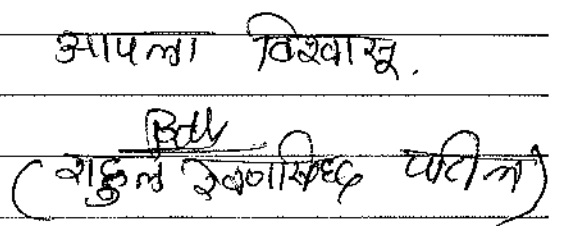 आपला विश्वासू.
(राहुल रेवणसिध्द पाटील)